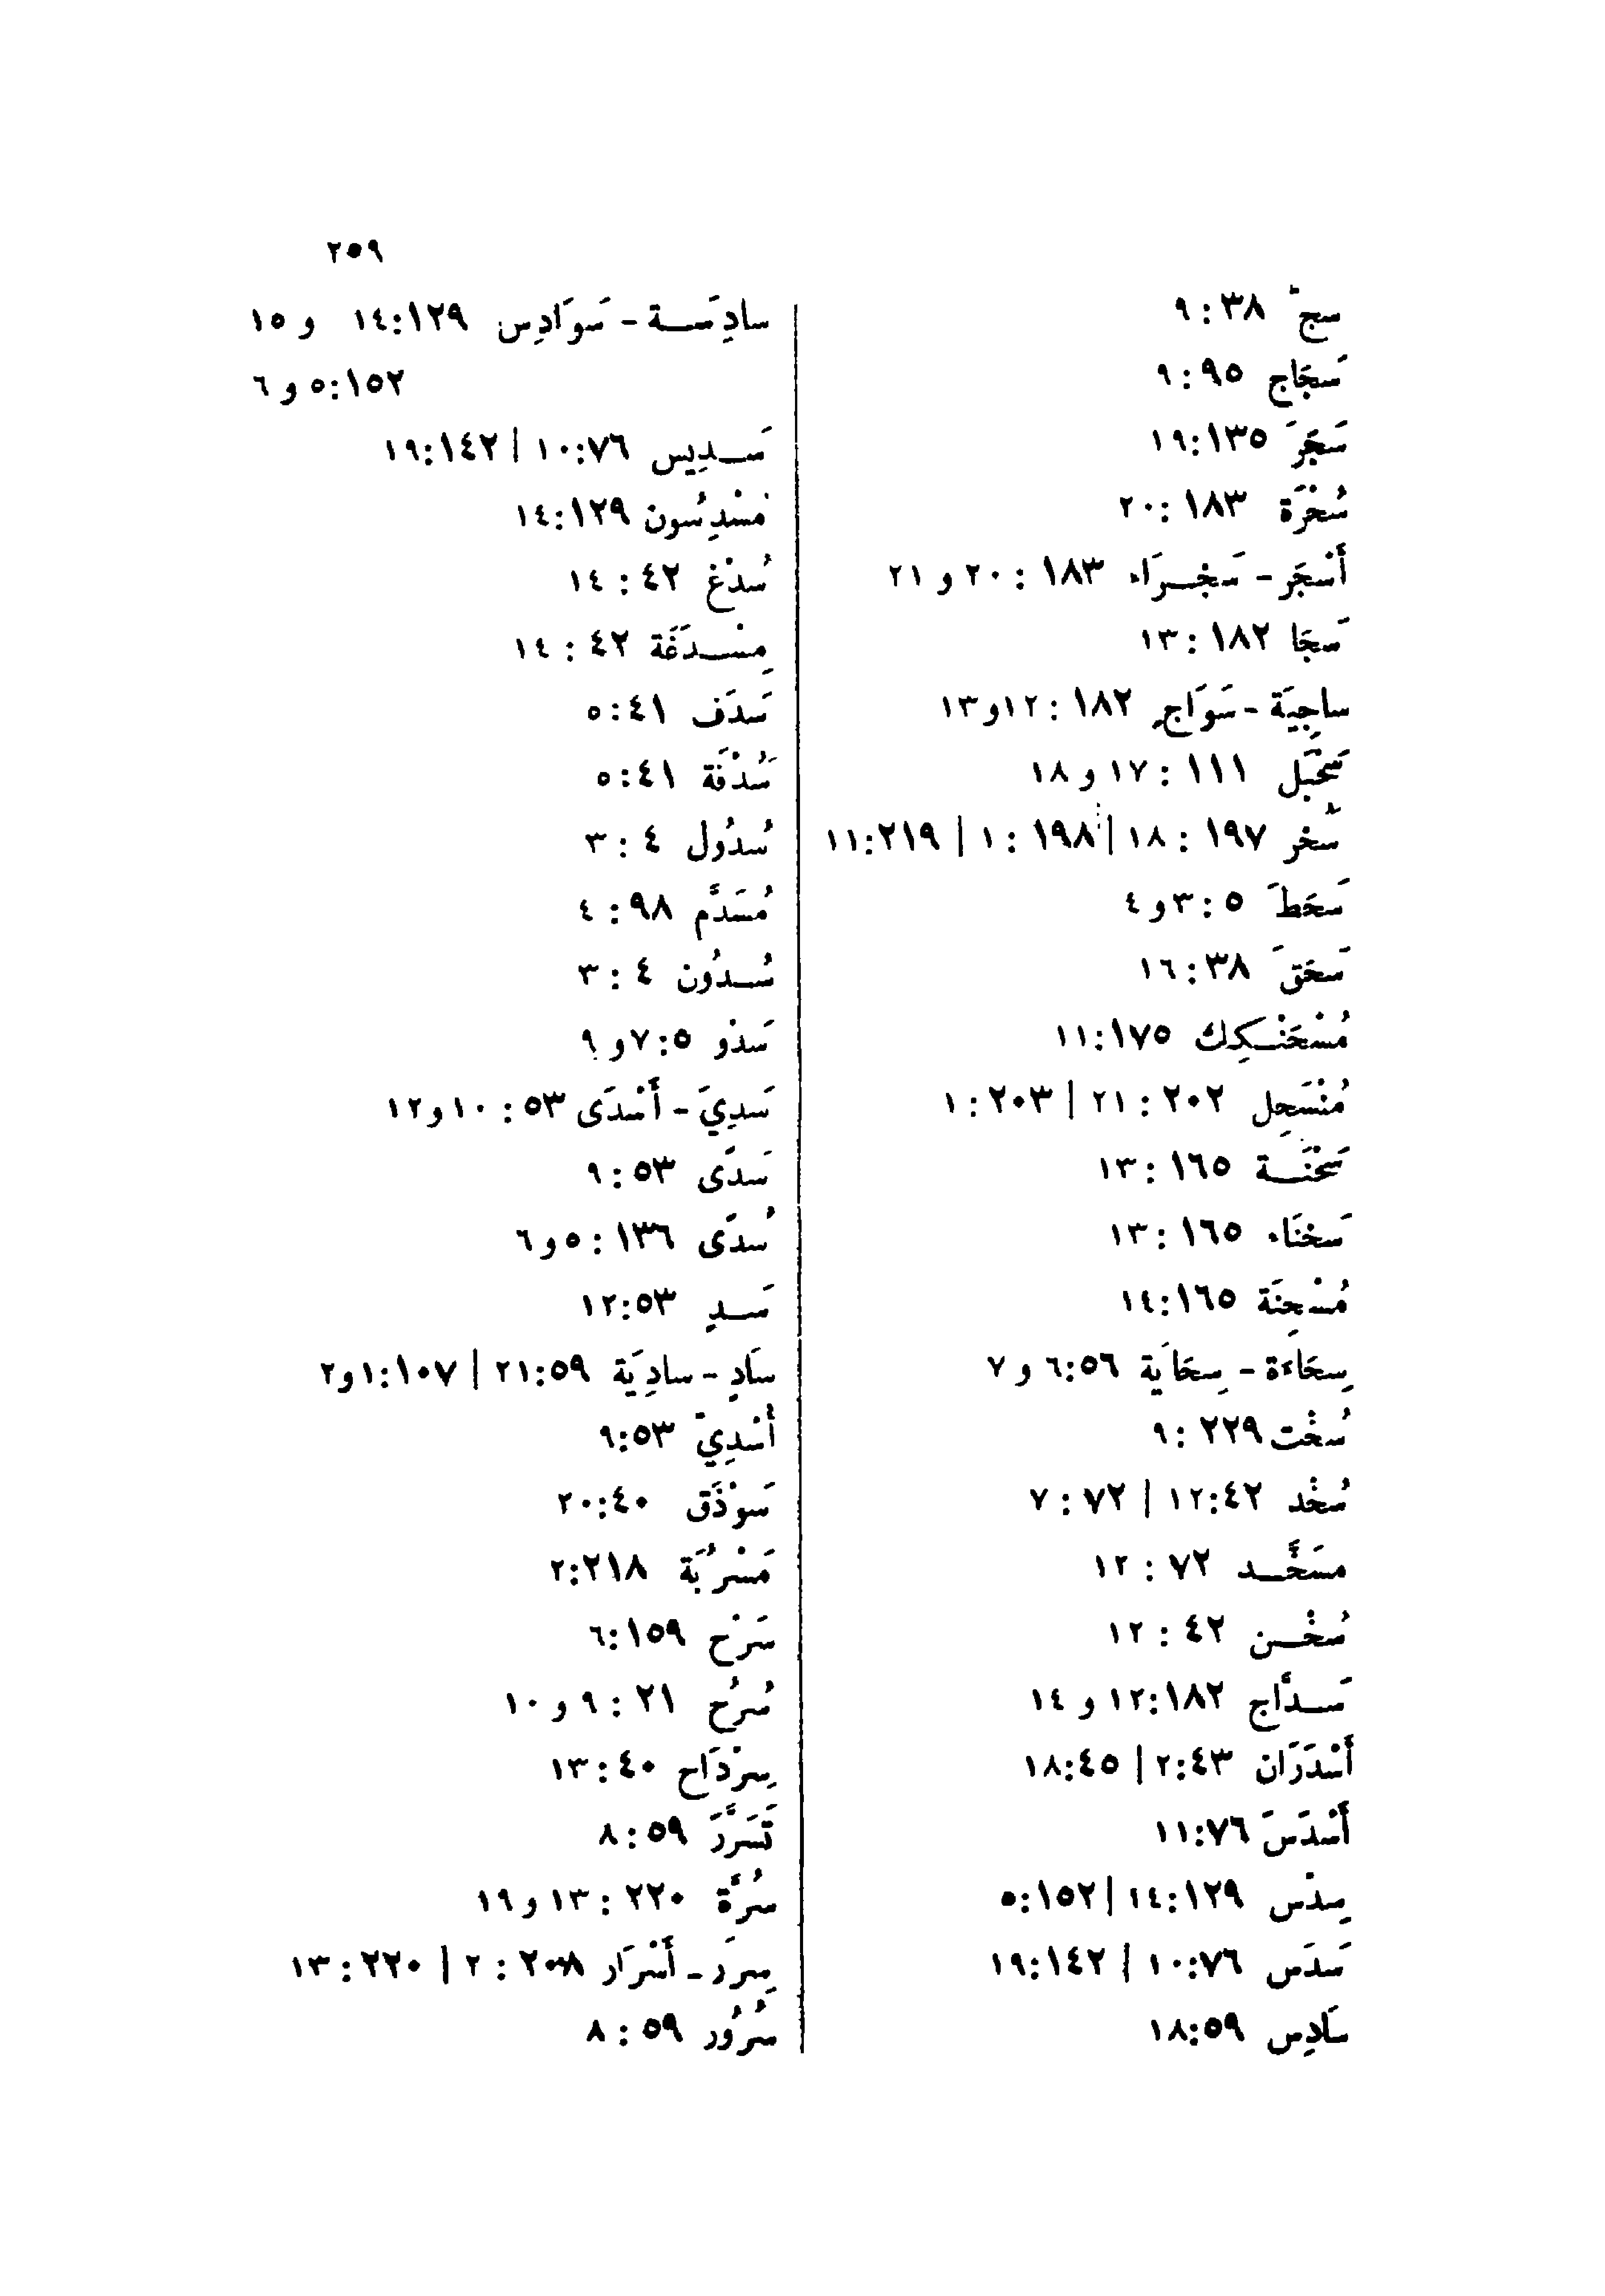 ٢٥٩
سجّ ٣٨ : ٩
سَجَاج ٩٥ : ٩
سَجَرَ ١٣٥:١٩
سُجْرَة ١٨٣ :٢٠
أَسْجَر - سَجْراء ١٨٣ : ٢٠ و ٢١
سَجَا ١٨٢ : ١٣
ساجِيَة - سَوَاجٍ ١٨٢ : ١٢و١٣
سَحْبَل ١١١ : ١٧ و ١٨
سَحْر ١٩٧ : ١٨ | ١٩٨ : ١ | ٢١٩:١١
سَحَطَ ٥ : ٣ و ٤
سَحَقَ ٣٨ : ١٦
مُسْحَنْكِك ١٧٥:١١
مُنْسَحِل ٢٠٢ : ٢١ | ٢٠٣ : ١
سَحْنَة ١٦٥ : ١٣
سَحْنَاء ١٦٥ : ١٣
مُسْحِنَة ١٦٥:١٤
سِحَاءَة - سِحَايَة ٥٦:٦ و ٧
سُخْت ٢٢٩ : ٩
سُخْد ٤٢:١٢ | ٧٢ : ٧
مسَخَّد ٧٢ : ١٢
سُخْن ٤٢ : ١٢
سَدَّاج ١٨٢:١٢ و ١٤
أَسْدَرَان ٤٣:٢ | ٤٥:١٨
أَسْدَسَ ٧٦:١١
سِدْس ١٢٩:١٤ | ١٥٢:٥
سَدَس ٧٦:١٠ | ١٤٢:١٩
سَادِس ٥٩:١٨
سادِسَة - سَوَادِس ١٢٩:١٤ و ١٥
١٥٢:٥ و ٦
سَدِيس ٧٦:١٠ | ١٤٢:١٩
مُسْدِسُون ١٢٩:١٤
سُدْغ ٤٢ : ١٤
مِسْدَغَة ٤٢ : ١٤
سَدَف ٤١:٥
سُدْفَة ٤١:٥
سُدُول ٤ : ٣
مُسَدَّم ٩٨ : ٤
سُدُون ٤ : ٣
سَدْو ٥:٧ و ٩
سَدِيَ - أَسْدَى ٥٣ : ١٠ و١٢
سَدًى ٥٣ : ٩
سُدًى ١٣٦ : ٥ و ٦
سَدٍ ٥٣:١٢
سَادٍ - سادِيَة ٥٩:٢١ | ١٠٧:١ و٢
أُسْدِيّ ٥٣:٩
سَوْذَق ٤٠:٢٠
مَسْرُبَة ٢١٨:٢
سَرْح ١٥٩:٦
سُرُح ٢١ : ٩ و ١٠
سِرْدَاح ٤٠ : ١٣
تَسَرَّرَ ٥٩ : ٨
سُرَّة ٢٢٠ : ١٣ و ١٩
سِرَر - أَسْرَار ٢٠٨ : ٢ | ٢٢٠ : ١٣
سُرُور ٥٩ : ٨